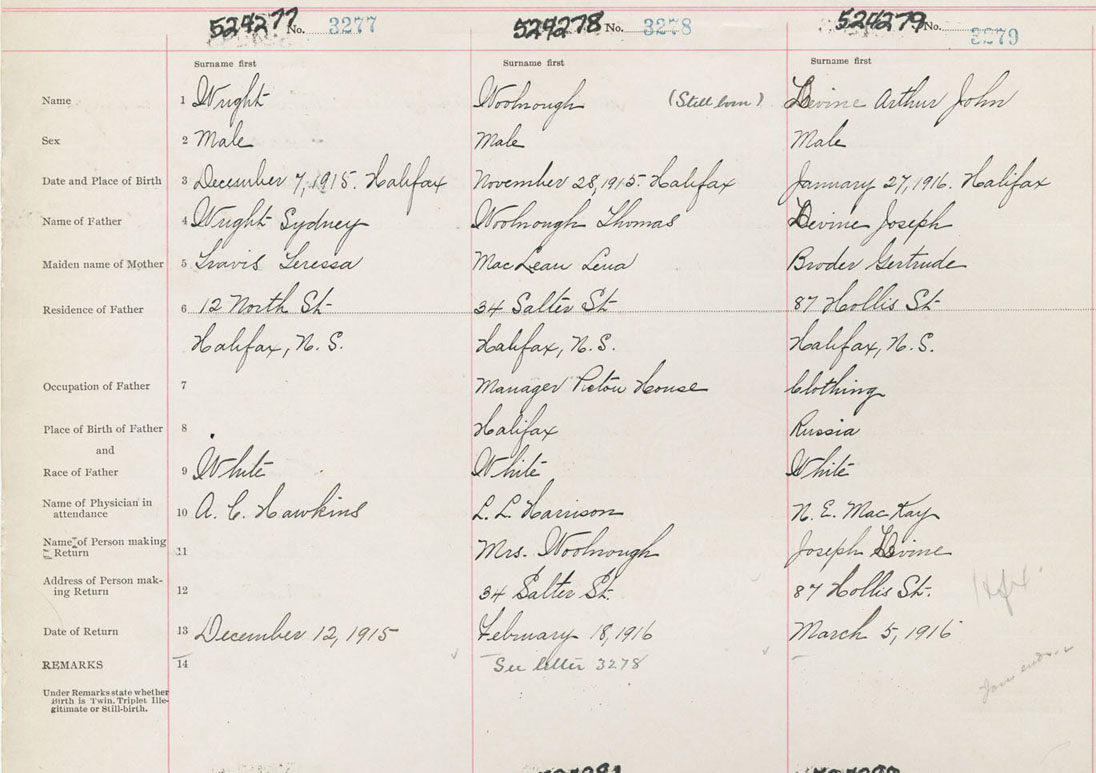 524277 No. 3277 524278 No. 3278 524279 No. 3279
Surname first Surname first Surname first
Name 1 Wright Woolnough (Still born) Levine Arthur John
Sex 2 Male Male Male
Date and Place of Birth 3 December 7, 1915. Halifax November 28, 1915. Halifax January 27, 1916. Halifax
Name of Father 4 Wright Sydney Woolnough Thomas Levine Joseph
Maiden name of Mother 5 Travis Teressa MacLean Lena Broder Gertrude
Residence of Father 6 12 North St 34 Salter St 87 Hollis St
Halifax, N. S. Halifax, N. S. Halifax, N. S.
Occupation of Father 7 Manager Pictou House Clothing
Place of Birth of Father 8 Halifax Russia
and
Race of Father 9 White White White
Name of Physician in
attendance 10 A. C. Hawkins L. L. Harrison N. E. MacKay
Name of Person making
Return 11 Mrs. Woolnough Joseph Levine
Address of Person mak-
ing Return 12 34 Salter St. 87 Hollis St. Hfx.
Date of Return 13 December 12, 1915 February 18, 1916 March 5, 1916
REMARKS 14 See letter 3278
Under Remarks state whether
Birth is Twin, Triplet Ille-
gitimate or Still-birth.